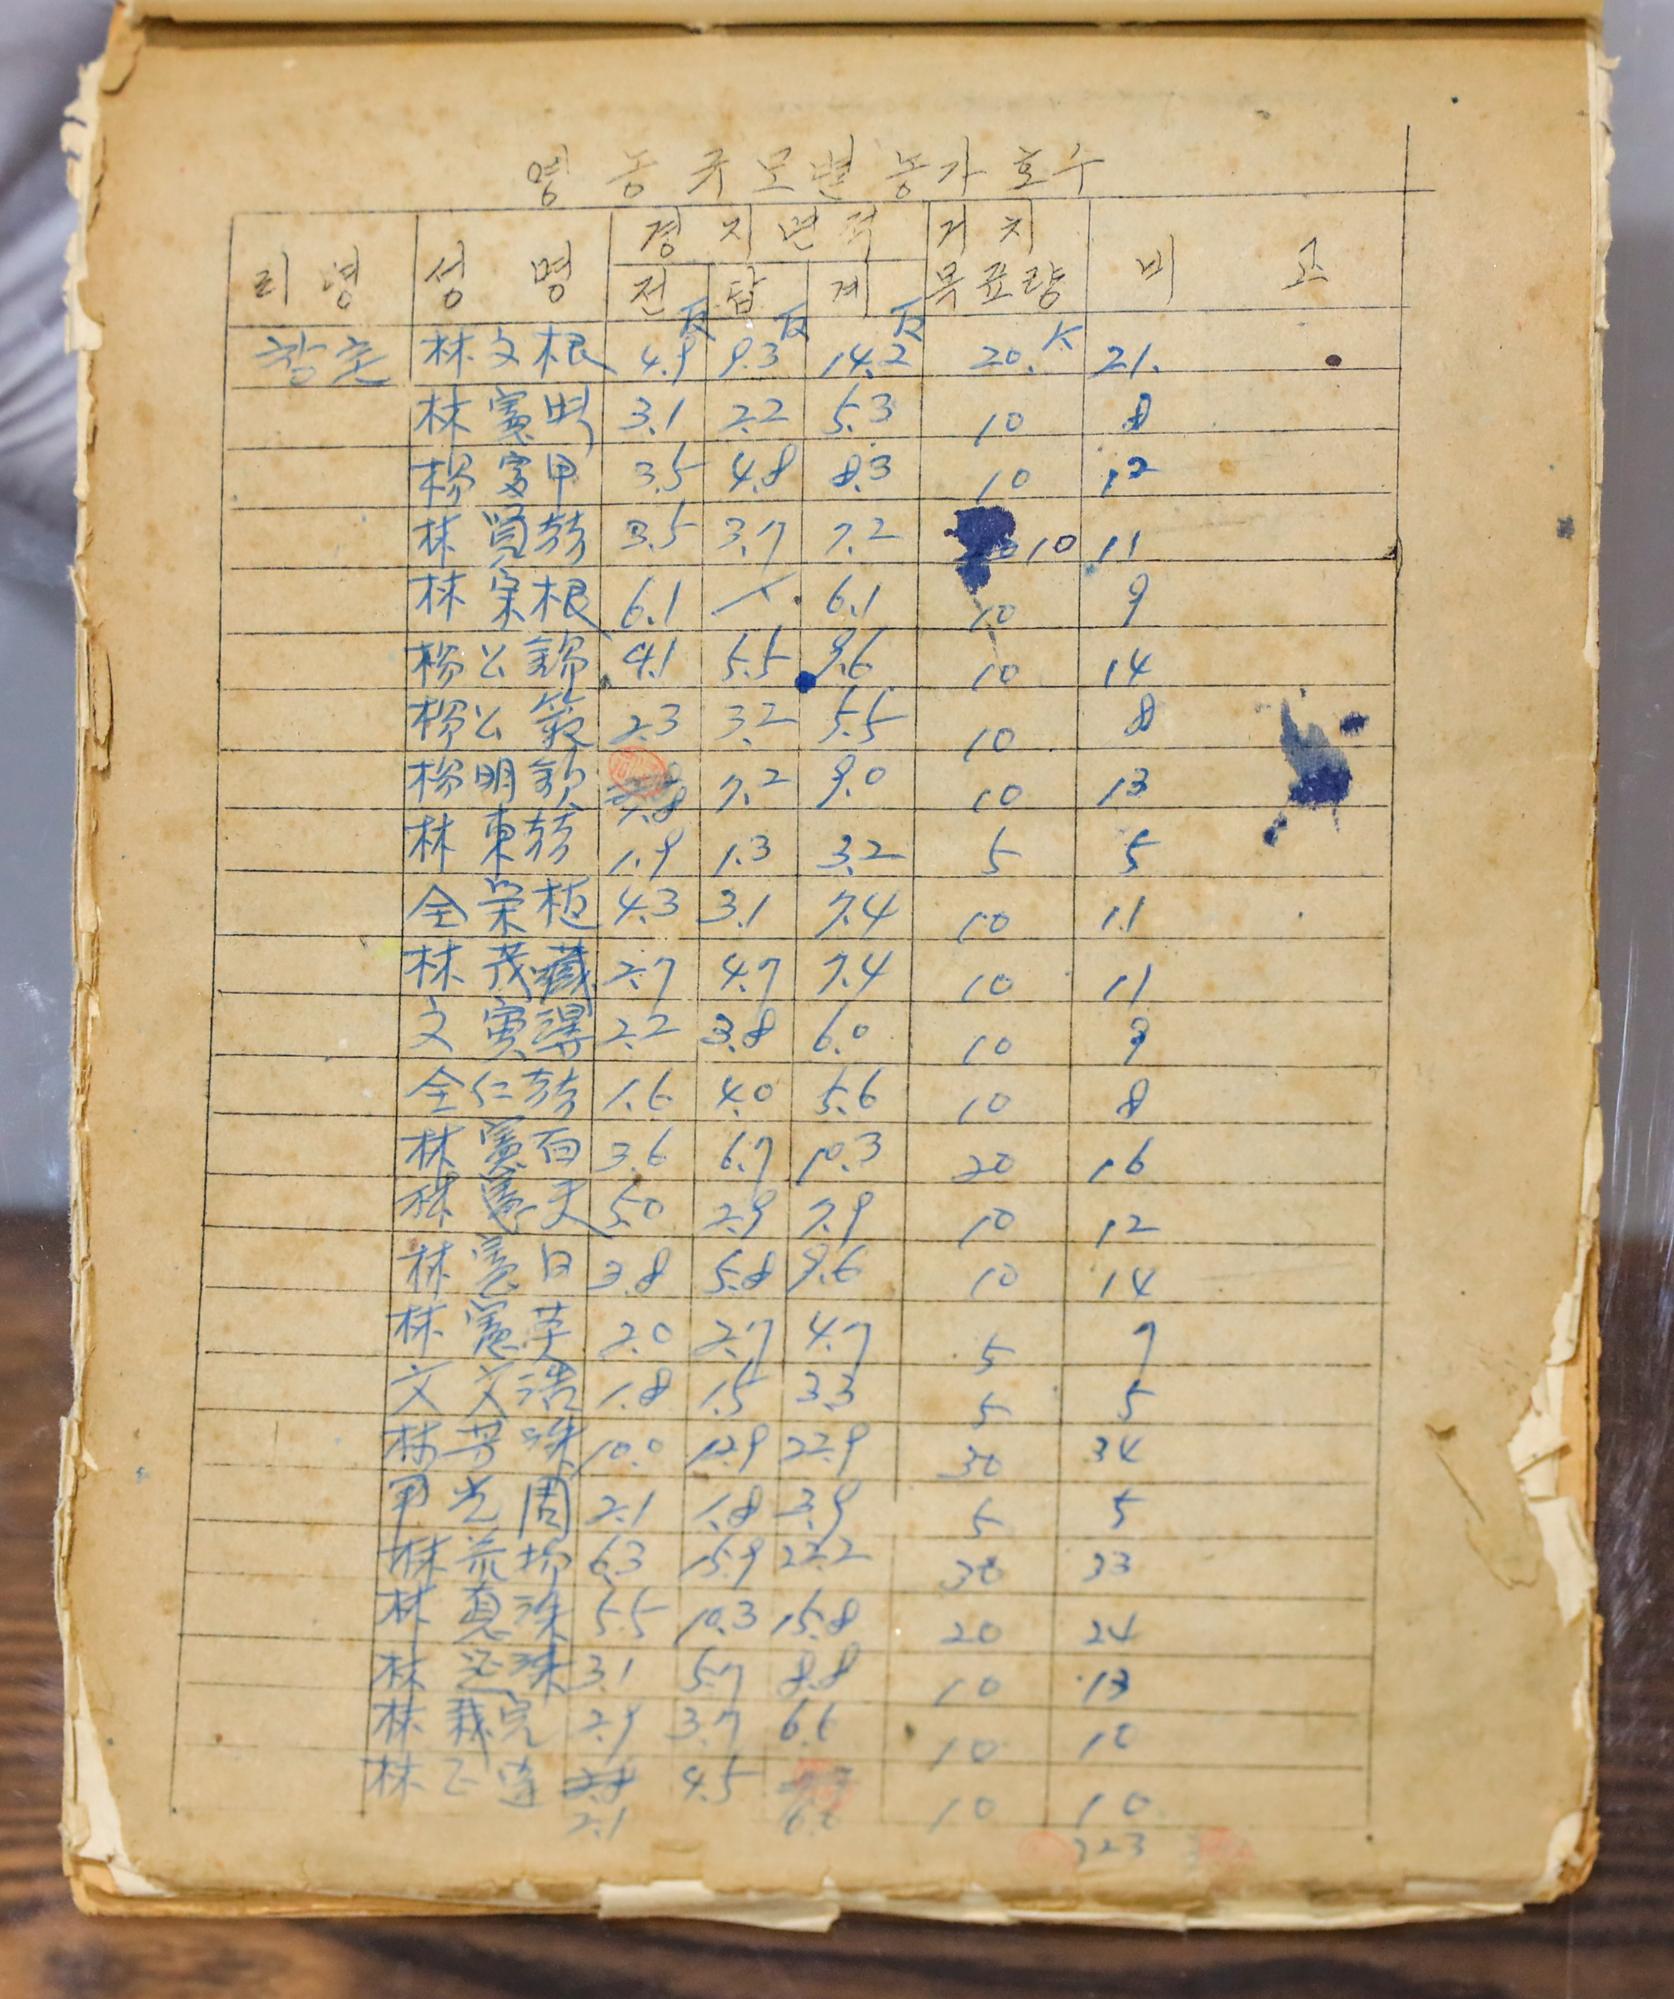 영농규모별 농가호수
리명 성명 경지면적 거치 비고
전 답 계 목표량
反 反 反 K
林文根 4.9 9.3 14.2 20. 21.
林憲 3.1 2.2 5.3 10 8
楊 甲 3.5 4.8 8.3 10 12
林賢 3.5 3.7 7.2 10 11
林宋根 6.1 6.1 10 9
楊公錫 4.1 5.5 9.6 10 14
楊公 2.3 3.2 5.5 10 8
楊明欽 1.8 7.2 9.0 10 13
林東 1.9 1.3 3.2 5 5
全栄 4.3 3.1 7.4 10 11
林茂藏 2.7 4.7 7.4 10 11
文 2.2 3.8 6.0 10 9
全仁 1.6 4.0 5.6 10 8
林憲百 3.6 6.7 10.3 20 16
林憲天 5.0 2.9 7.9 10 12
林憲日 3.8 5.8 9.6 10 14
林憲 2.0 2.7 4.7 5 7
文文浩 1.8 1.5 3.3 5 5
林芳洙 10.0 12.9 22.9 30 34
光周 2.1 1.8 3.9 5 5
林 6.3 15.9 22.2 30 33
林真洙 5.5 10.3 15.8 20 24
林 洙 3.1 5.7 8.8 10 13
林栽完 2.9 3.7 6.6 10 10
林正 4.5 10 10
2.1 6.6
323